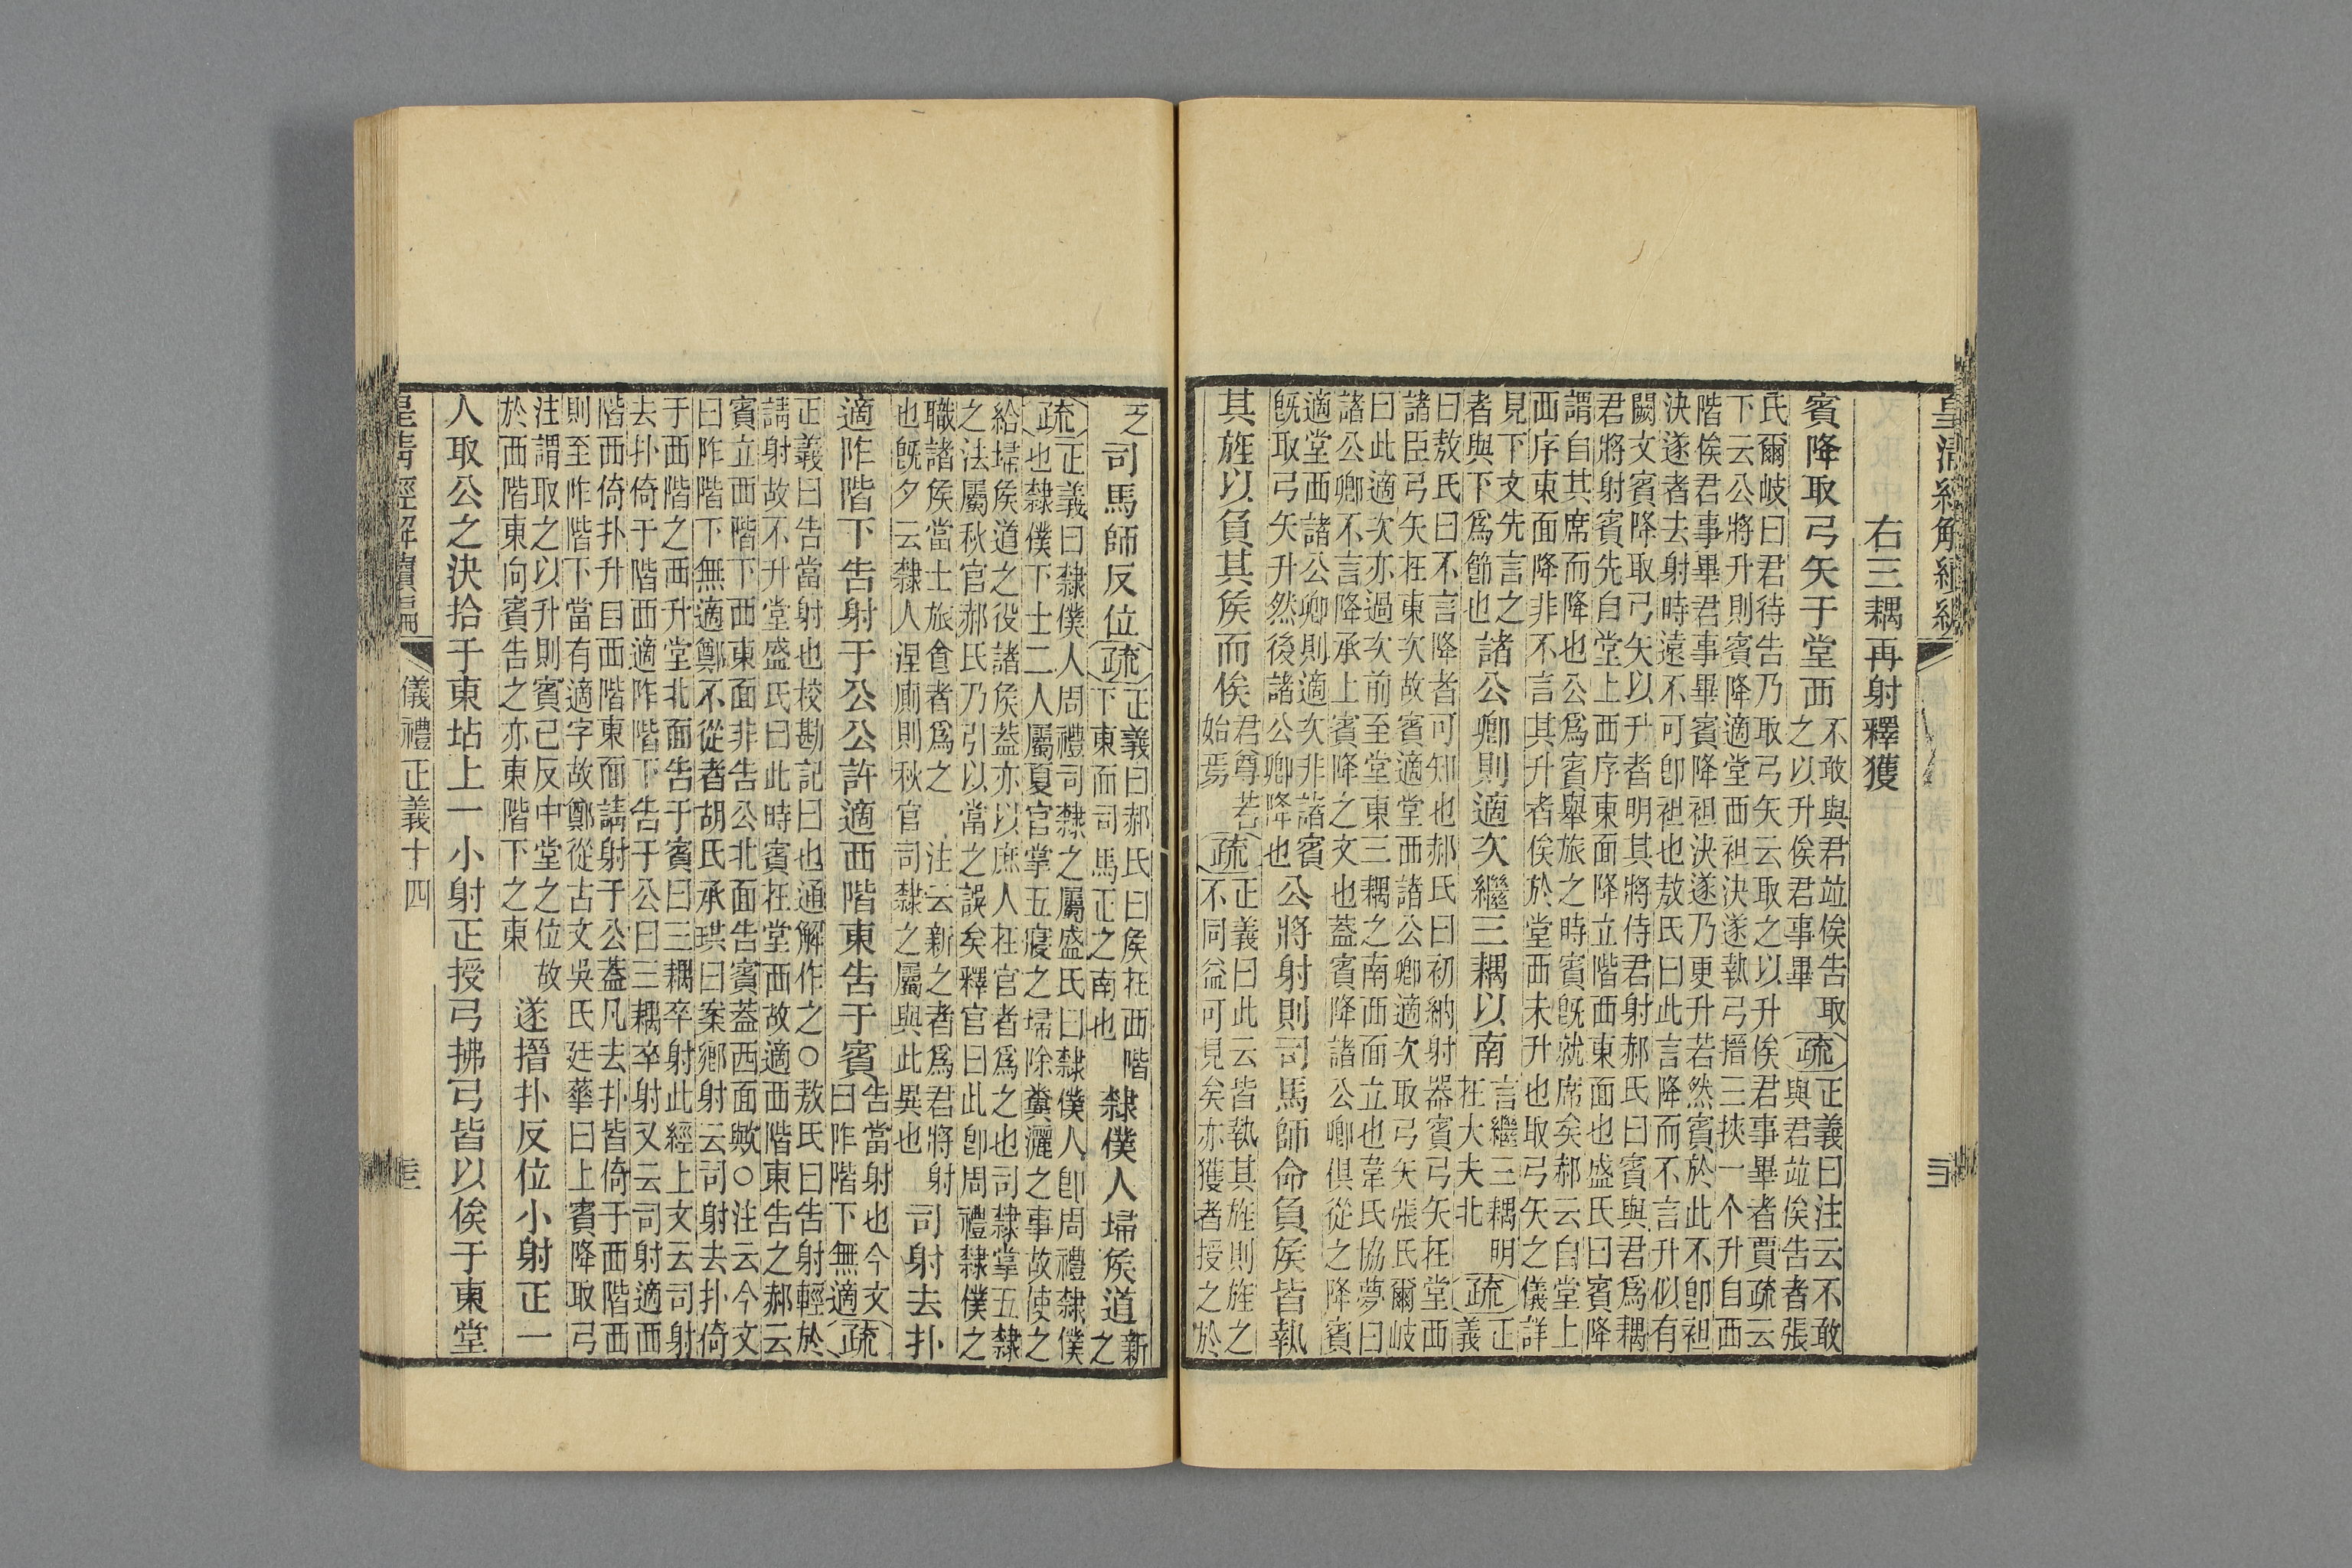 皇清經解續編
右三耦再射釋獲
賓降取弓矢于堂西
不敢與君竝俟告取
之以升俟君事畢
疏
正義曰注云不敢
與君竝俟告者張
氏爾岐曰君待告乃取弓矢云取之以升俟君事畢者賈疏云
下云公將升則賓降適堂西袒決遂執弓搢三挾一个升自西
階俟君事畢君事畢賓降袒決遂乃更升若然賓於此不卽袒
決遂者去射時遠不可卽袒也敖氏曰此言降而不言升似有
闕文賓降取弓矢以升者明其將侍君射郝氏曰賓與君爲耦
君將射賓先自堂上西序東面降立階西東面也盛氏曰賓降
謂自其席而降也公爲賓舉旅之時賓旣就席矣郝云自堂上
西序東面降非不言其升者俟於堂西未升也取弓矢之儀詳
見下文先言之
者與下爲節也
諸公卿則適次繼三耦以南
言繼三耦明
在大夫北
疏
正
義
曰敖氏曰不言降者可知也郝氏曰初納射器賓弓矢在堂西
諸臣弓矢在東次故賓適堂西諸公卿適次取弓矢張氏爾岐
曰此適次亦過次前至堂東三耦之南西面立也韋氏協夢曰
諸公卿不言降承上賓降之文也蓋賓降諸公卿俱從之降賓
適堂西諸公卿則適次非諸賓
旣取弓矢升然後諸公卿降也
公將射則司馬師命負侯皆執
其旌以負其侯而俟
君尊若
始焉
疏
正義曰此云皆執其旌則旌之
不同益可見矣亦獲者授之於
之
司馬師反位
疏
正義曰郝氏曰侯在西階
下東而司馬正之南也
隸僕人埽侯道
新
之
疏
正義曰隸僕人周禮司隸之屬盛氏曰隸僕人卽周禮隸僕
也隸僕下士二人屬夏官掌五寢之埽除糞灑之事故使之
給埽侯道之役諸侯蓋亦以庶人在官者爲之也司隸掌五隸
之法屬秋官郝氏乃引以當之誤矣釋官曰此卽周禮隸僕之
職諸侯當士旅食者爲之 注云新之者爲君將射
也旣夕云隸人涅廁則秋官司隸之屬與此異也
司射去扑
適阼階下告射于公公許適西階東告于賓
告當射也今文
曰阼階下無適
疏
正義曰告當射也校勘記曰也通解作之○敖氏曰告射輕於
請射故不升堂盛氏曰此時賓在堂西故適西階東告之郝云
賓立西階下西東面非告公北面告賓蓋西面歟○注云今文
曰阼階下無適鄭不從者胡氏承珙曰案鄉射云司射去扑倚
于西階之西升堂北面告于賓曰三耦卒射此經上文云司射
去扑倚于階西適阼階下告于公曰三耦卒射又云司射適西
階西倚扑升自西階東面請射于公蓋凡去扑皆倚于西階西
則至阼階下當有適字故鄭從古文吳氏廷華曰上賓降取弓
注謂取之以升則賓已反中堂之位故
於西階東向賓告之亦東階下之東
遂搢扑反位小射正一
人取公之決拾于東坫上一小射正授弓拂弓皆以俟于東堂
皇清經解續編
儀禮正義十四